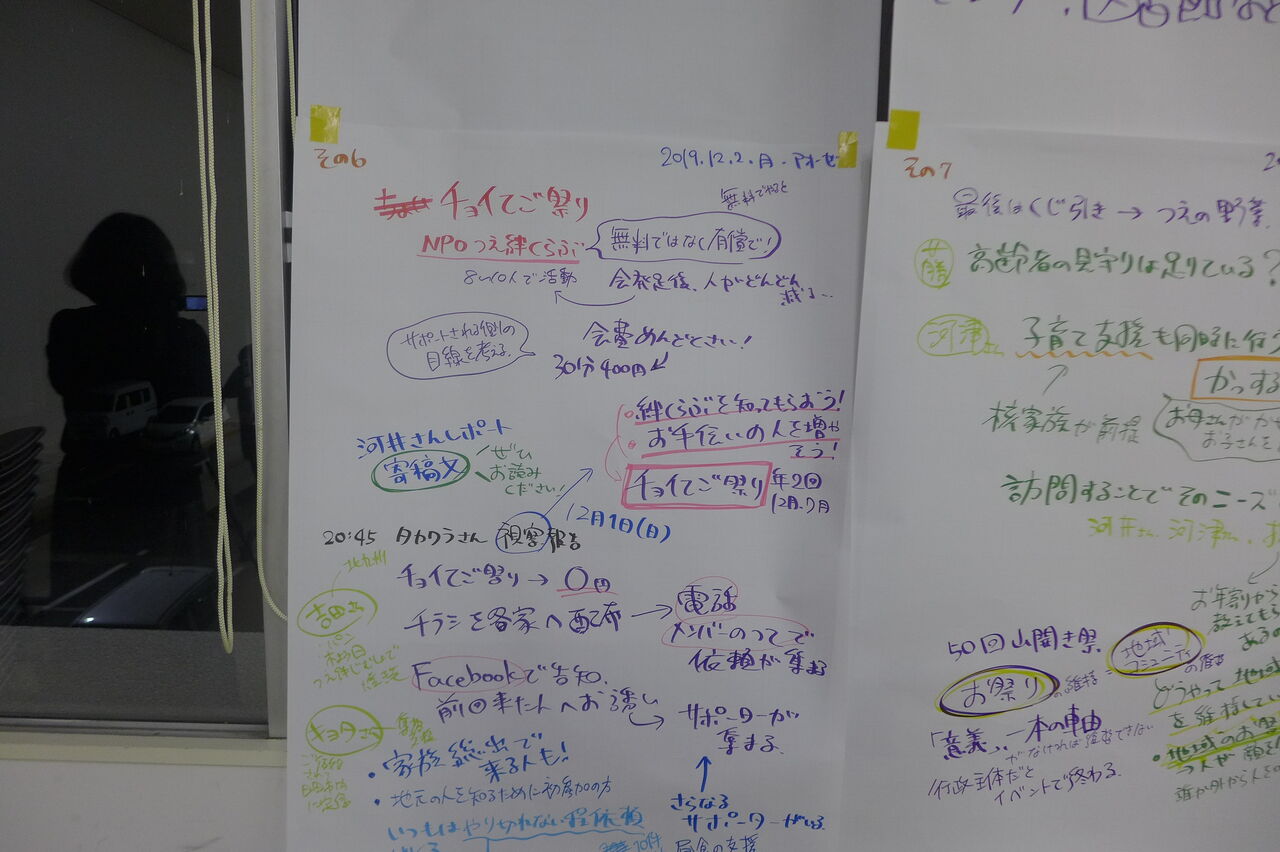 その6
2019.12.2.月.アオーゼ
チョイてご祭り
無料でやると
NPOつえ絆くらぶ
無料ではなく有償で!
8〜10人で活動
会発足後、人がどんどん
減り…
サポートされる側の
目線を考える。
会費めんどくさい!
30分400円
絆くらぶを知ってもらおう!
お手伝いの人を増や
そう!
チョイてご祭り
年2回
12月、7月
河井さんレポート
寄稿文
ぜひ
お読み
ください!
12月1日(日)
20:45 タカクラさん 視察報告
北九州
チョイてご祭り→0円
吉田さん
チラシを各家へ配布
電話
メンバーのつてで
依頼が集まる
Facebookで告知.
前回来た人へお誘い
サポーターが
集まる.
キョウさん
・家族総出で
来る人も!
・地元の人を知るために初参加の方
さらなる
サポーターがいる.
いつもはやり切れない程依頼
10件
その7
最後はくじ引き→つえの野菜
高齢者の見守りは足りている?
河津さん
子育て支援も同時に行う
かっする
核家族が前提
お母さんが
お子さんを
訪問することでそのニーズ
河井さん、河津さん、
お年寄りから
教えてもら
あるの
50回山開き祭
お祭りの維持=
地域
コミュニティの維持
どうやって地域
を維持してい
「意義」、一本の軸
がなければ維持できない
行政主体だと
イベントで終わる.
・地域のお祭